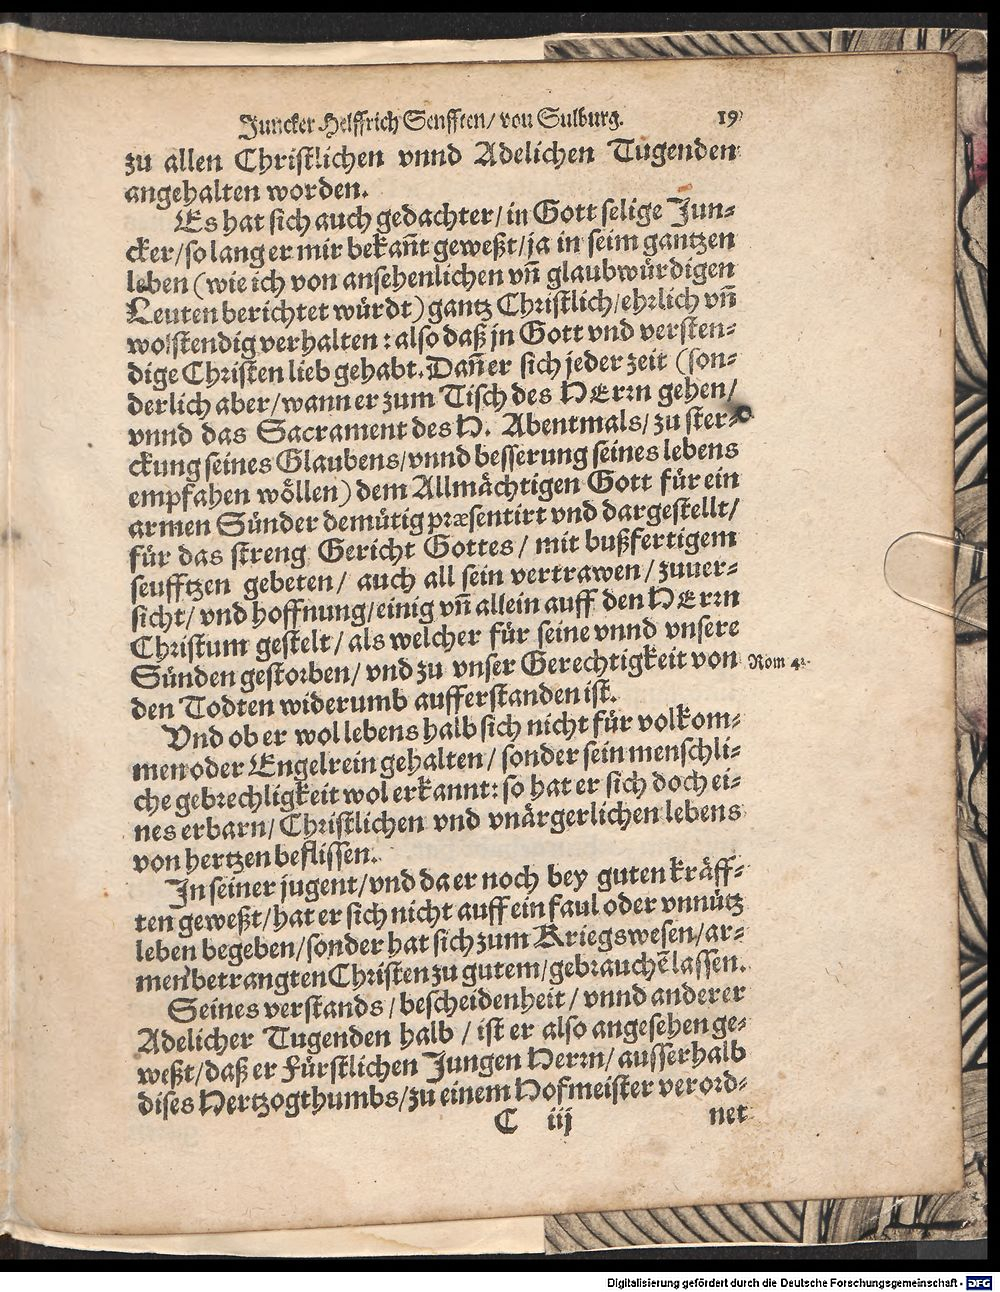 Juncker Helffrich Senfften/ von Sulburg. 19
zu allen Christlichen vnnd Adelichen Tugenden
angehalten worden.
Es hat sich auch gedachter/ in Gott selige Jun-
cker/ so lang er mir bekañt geweßt/ ja in seim gantzen
leben (wie ich von ansehenlichen vñ glaubwürdigen
Leuten berichtet würdt) gantz Christlich/ ehrlich vñ
wolstendig verhalten: also daß jn Gott vnd versten-
dige Christen lieb gehabt. Dañ er sich jeder zeit (son-
derlich aber/ wann er zum Tisch des HErrn gehen/
vnnd das Sacrament des H. Abentmals/ zu ster-
ckung seines Glaubens/ vnnd besserung seines lebens
empfahen wöllen) dem Allmächtigen Gott für ein
armen Sünder demütig præsentirt vnd dargestellt/
für das streng Gericht Gottes/ mit bußfertigem
seufftzen gebeten/ auch all sein vertrawen/ zuuer-
sicht/ vnd hoffnung/ einig vñ allein auff den HErrn
Christum gestelt/ als welcher für seine vnnd vnsere
Sünden gestorben/ vnd zu vnser Gerechtigkeit von Rom 4.
den Todten widerumb aufferstanden ist.
Vnd ob er wol lebens halb sich nicht für volkom-
men oder Engelrein gehalten/ sonder sein menschli-
che gebrechligkeit wol erkannt: so hat er sich doch ei-
nes erbarn/ Christlichen vnd vnärgerlichen lebens
von hertzen beflissen.
In seiner jugent/ vnd da er noch bey guten kräff-
ten geweßt/ hat er sich nicht auff ein faul oder vnnütz
leben begeben/ sonder hat sich zum Kriegswesen/ ar-
men betrangten Christen zu gutem/ gebrauchẽ lassen.
Seines verstands/ bescheidenheit/ vnnd anderer
Adelicher Tugenden halb/ ist er also angesehen ge-
weßt/ daß er Fürstlichen Jungen Herrn/ ausserhalb
dises Hertzogthumbs/ zu einem Hofmeister verord-
C iij net
Digitalisierung gefördert durch die Deutsche Forschungsgemeinschaft - DFG